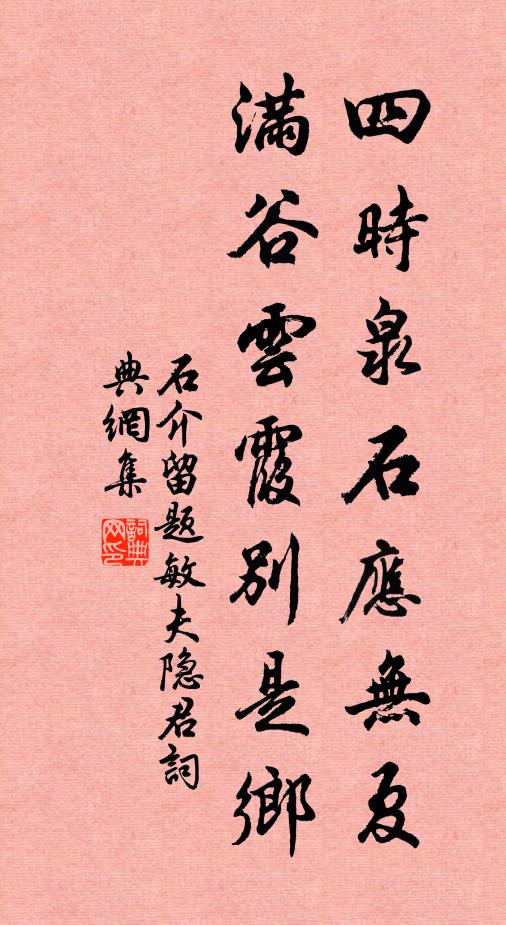 四時泉石應無夏
滿谷雲霞別是鄉
石介留題敏夫隐君詞
典網集
詞典网印